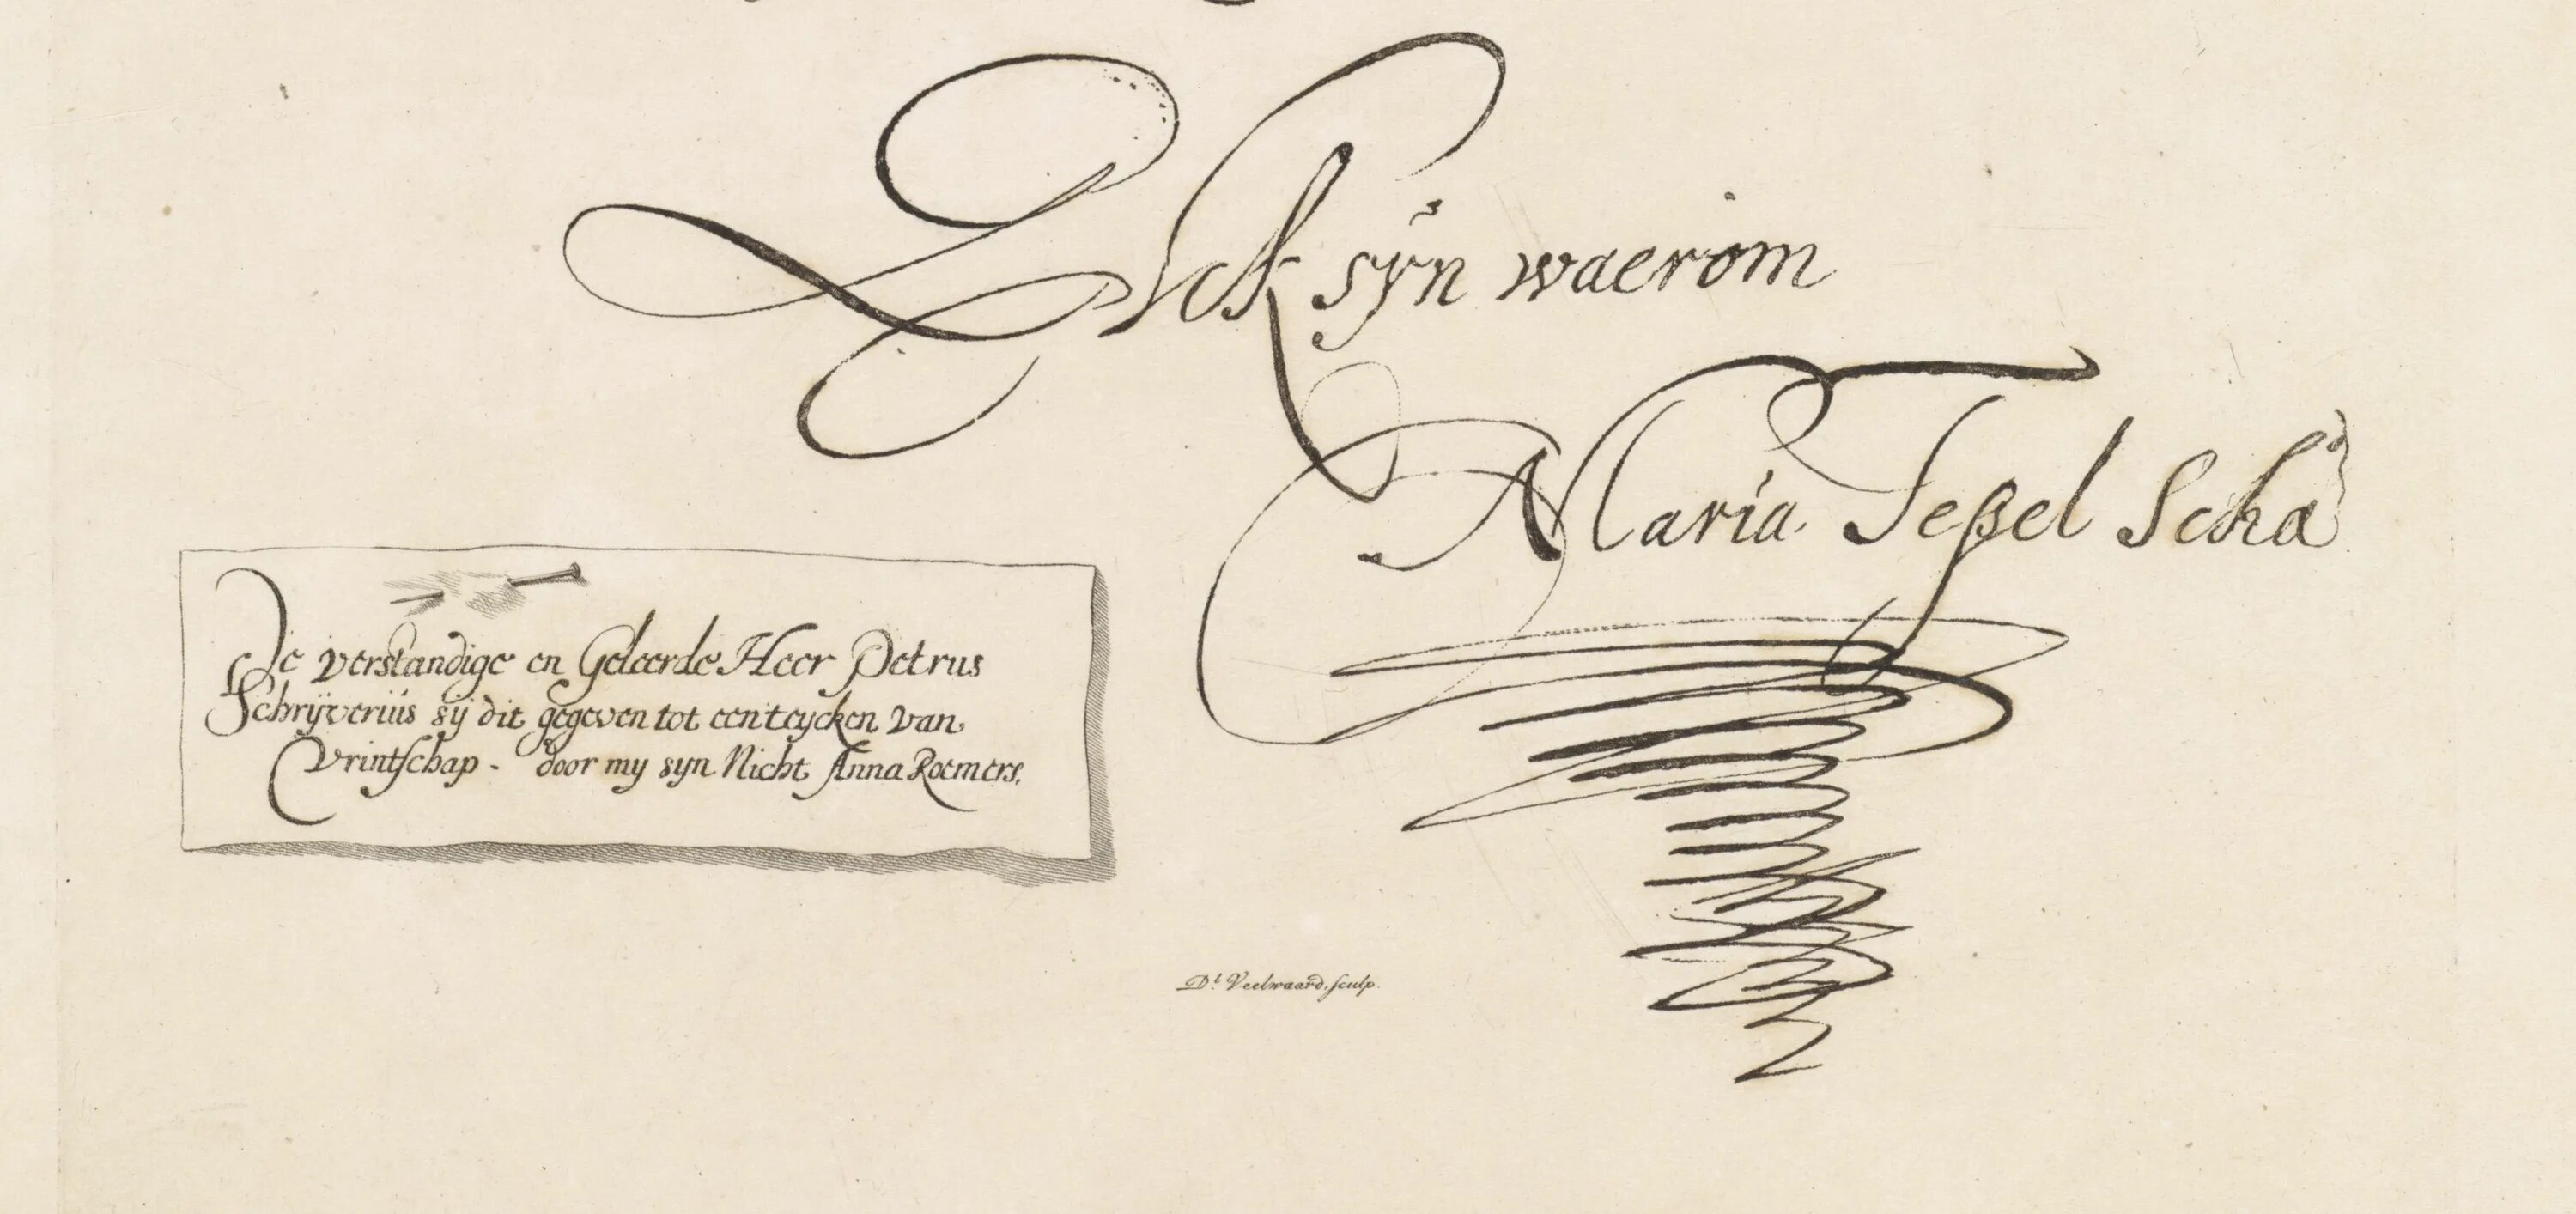 Elck syn waerom
Maria Teßel Scha
De verstandige en Geleerde Heer Petrus
Schrijveriús sij dit gegeven tot een teycken van
Vrintschap - door my syn Nicht Anna Roemers.
Dl. Veelwaard. sculp.